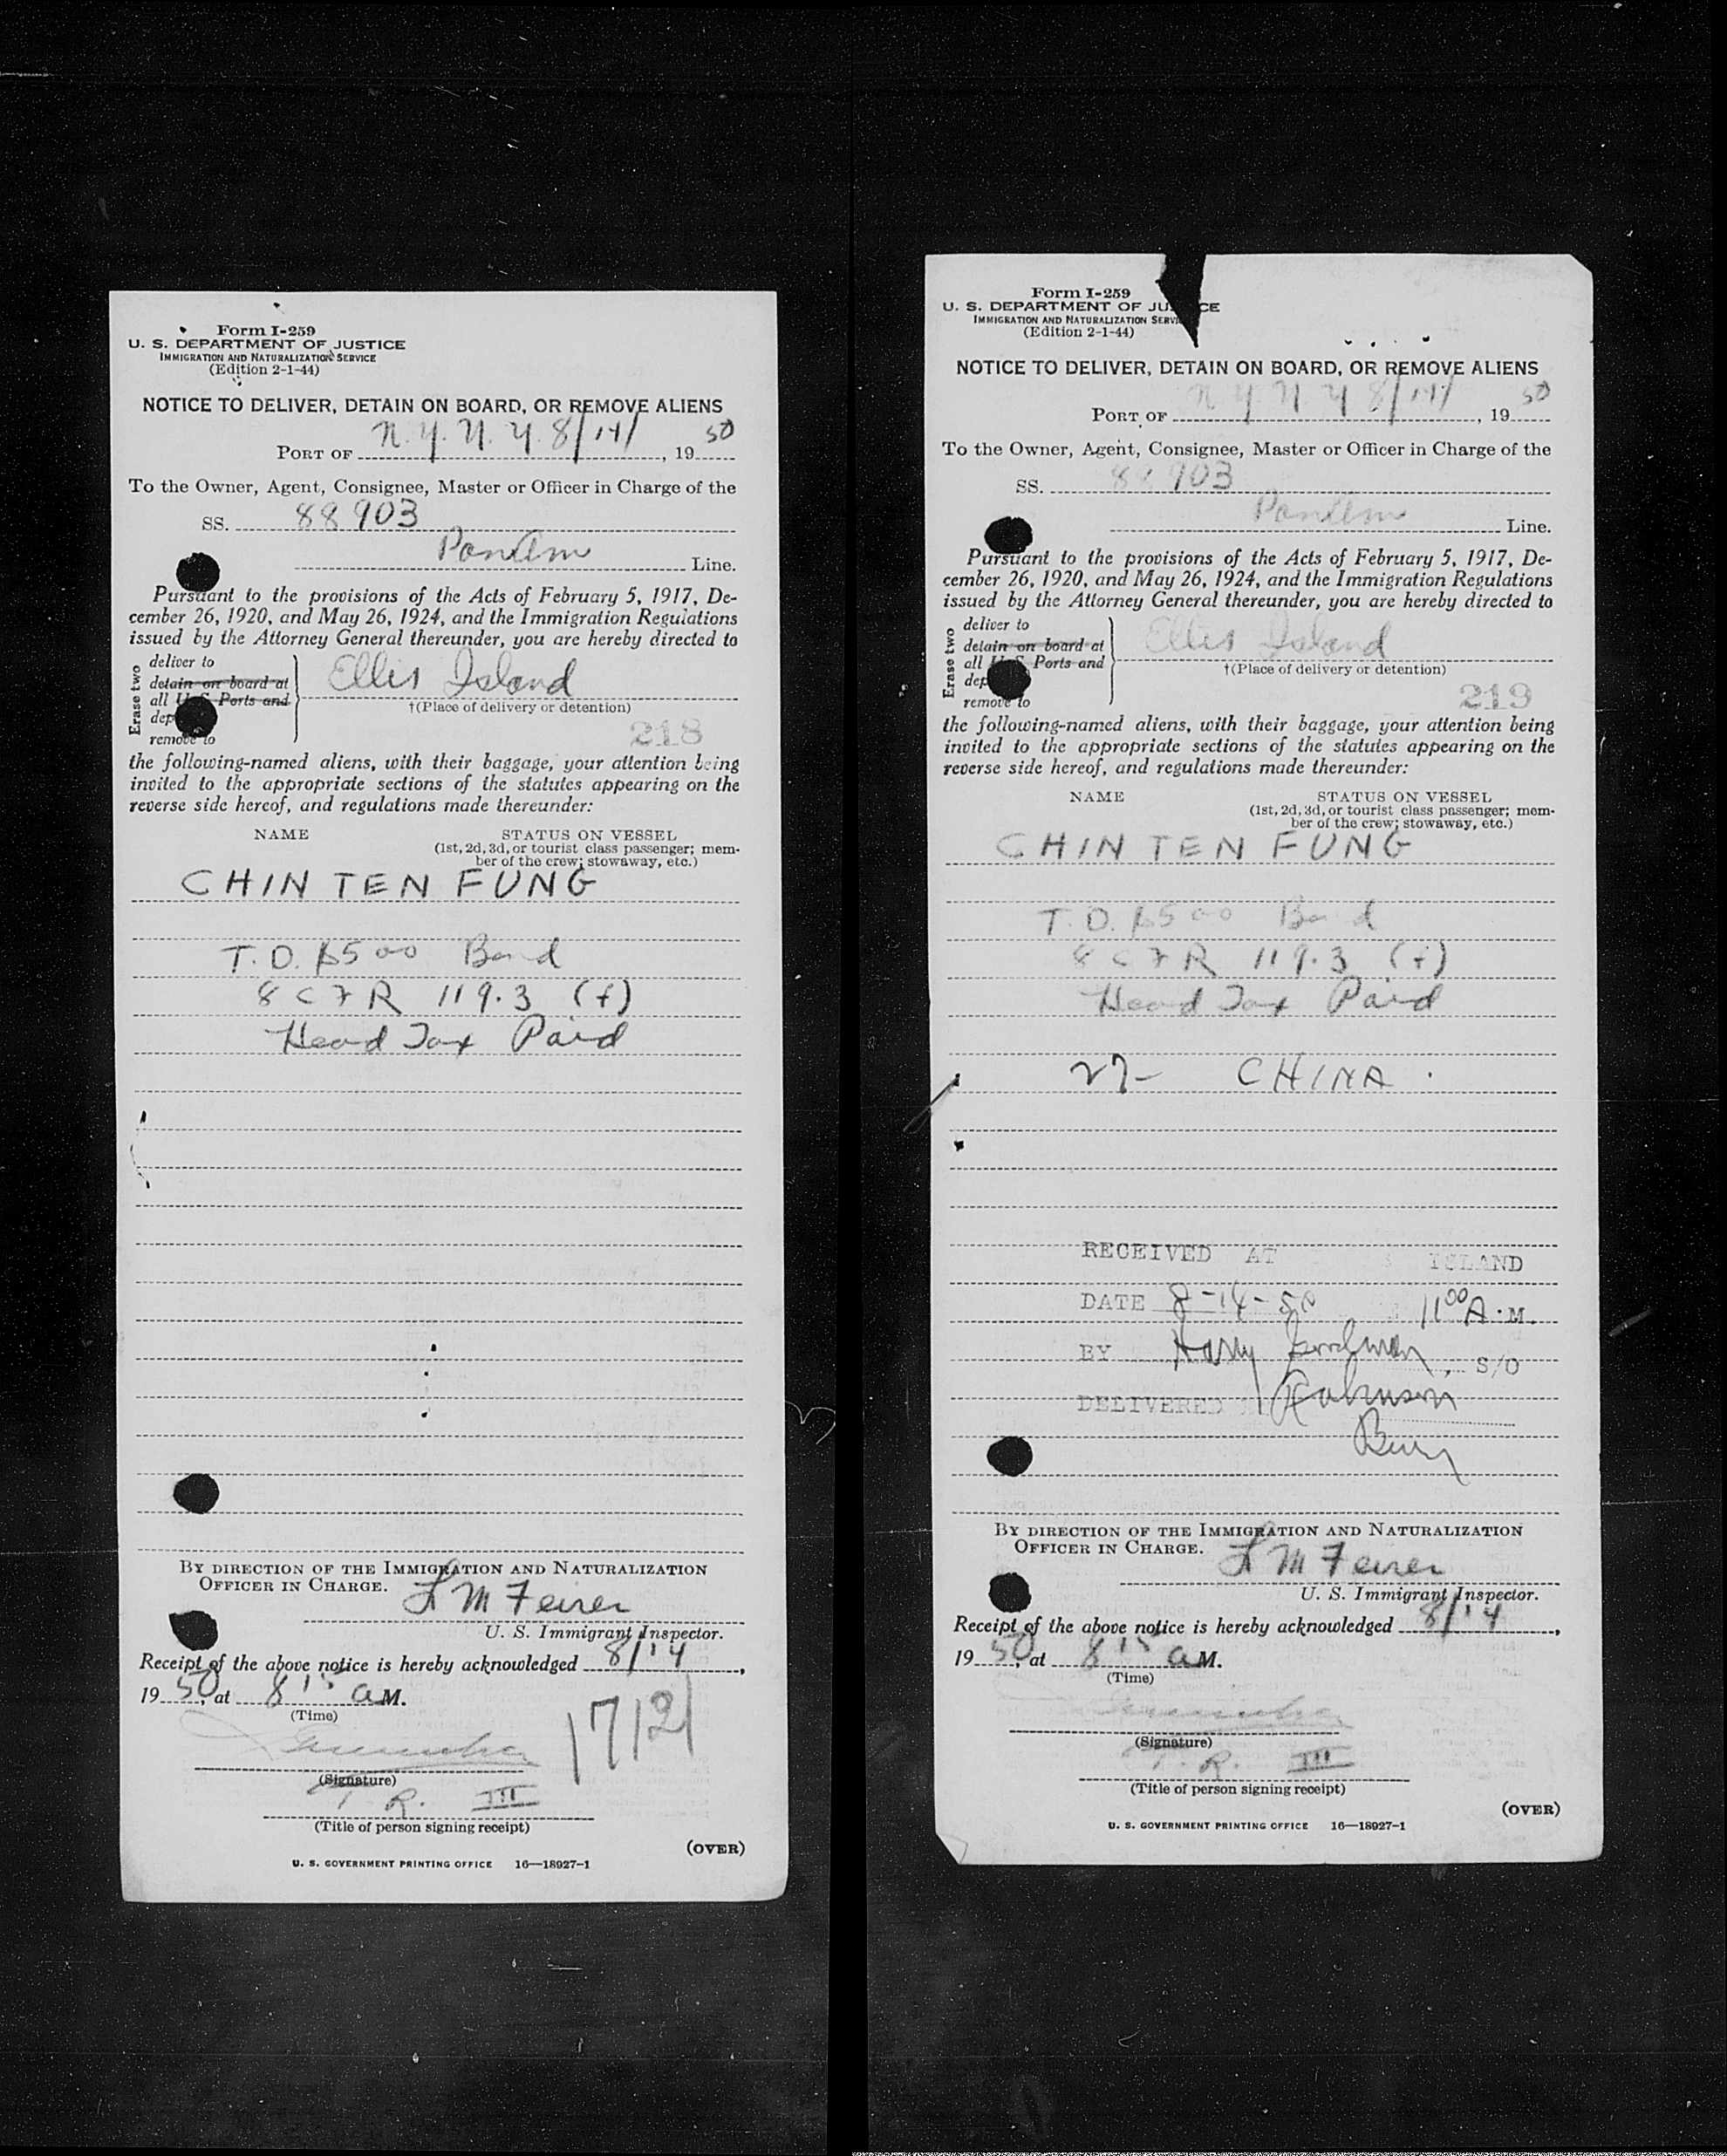 Form I-259
U. S. DEPARTMENT OF JUSTICE
IMMIGRATION AND NATURALIZATION SERVICE
(Edition 2-1-44)
NOTICE TO DELIVER, DETAIN ON BOARD, OR REMOVE ALIENS
PORT OF N.Y. N.Y. 8/14/, 19 50
To the Owner, Agent, Consignee, Master or Officer in Charge of the
SS. 88903
PanAm Line.
Pursuant to the provisions of the Acts of February 5, 1917, De-
cember 26, 1920, and May 26, 1924, and the Immigration Regulations
issued by the Attorney General thereunder, you are hereby directed to
Erase two
deliver to
detain on board at
all U S Ports and
dep
remove to
Ellis Island
†(Place of delivery or detention)
218
the following-named aliens, with their baggage, your attention being
invited to the appropriate sections of the statutes appearing on the
reverse side hereof, and regulations made thereunder:
NAME STATUS ON VESSEL
(1st, 2d, 3d, or tourist class passenger; mem-
ber of the crew; stowaway, etc.)
CHIN TEN FUNG
T. D. $500 Bond
8 CFR 119.3 (f)
Head Tax Paid
BY DIRECTION OF THE IMMIGRATION AND NATURALIZATION
OFFICER IN CHARGE.
U. S. Immigrant Inspector.
Receipt of the above notice is hereby acknowledged 8/14,
19 50, at 8 15 a M.
(Time)
1712
(Signature)
T. R. III
(Title of person signing receipt)
(OVER)
U. S. GOVERNMENT PRINTING OFFICE 16—18927-1
Form I-259
U. S. DEPARTMENT OF JU CE
IMMIGRATION AND NATURALIZATION SERVI
(Edition 2-1-44)
NOTICE TO DELIVER, DETAIN ON BOARD, OR REMOVE ALIENS
PORT OF N Y N Y 8/14/, 19 50
To the Owner, Agent, Consignee, Master or Officer in Charge of the
SS. 88903
PanAm Line.
Pursuant to the provisions of the Acts of February 5, 1917, De-
cember 26, 1920, and May 26, 1924, and the Immigration Regulations
issued by the Attorney General thereunder, you are hereby directed to
Erase two
deliver to
detain on board at
all U S Ports and
dep
remove to
Ellis Island
†(Place of delivery or detention)
219
the following-named aliens, with their baggage, your attention being
invited to the appropriate sections of the statutes appearing on the
reverse side hereof, and regulations made thereunder:
NAME STATUS ON VESSEL
(1st, 2d, 3d, or tourist class passenger; mem-
ber of the crew; stowaway, etc.)
CHIN TEN FUNG
T. D. $500 Bond
8 CFR 119.3 (f)
Head Tax Paid
27- CHINA
RECEIVED AT ISLAND
DATE 8-14-50 11 00 A.M.
BY Harry S/O
DELIVERED Robinson
BY DIRECTION OF THE IMMIGRATION AND NATURALIZATION
OFFICER IN CHARGE.
U. S. Immigrant Inspector.
Receipt of the above notice is hereby acknowledged 8/14,
19 50, at 8 15 a M.
(Time)
(Signature)
T. R. III
(Title of person signing receipt)
(OVER)
U. S. GOVERNMENT PRINTING OFFICE 16—18927-1